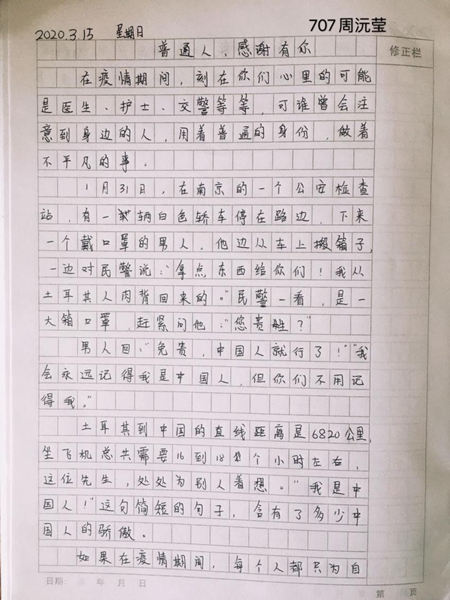 707周沅莹
2020.3.15 星期日
普通人，感谢有你
修正栏
在疫情期间，刻在你们心里的可能
是医生、护士、交警等等，可谁曾会注
意到身边的人，用着普通的身份，做着
不平凡的事。
1月31日，在南京的一个公安检查
站，有一辆白色轿车停在路边，下来
一个戴口罩的男人，他边从车上搬箱子，
一边对民警说：“拿点东西给你们！我从
土耳其人肉背回来的。”民警一看，是一
大箱口罩，赶紧问他：“您贵姓？”
男人回：“免贵，中国人就行了！”“我
会永远记得我是中国人，但你们不用记
得我。”
土耳其到中国的直线距离是6820公里，
坐飞机总共需要16到18个小时左右，
这位先生，处处为别人着想。“我是中
国人！”这句简短的句子，含有了多少中
国人的骄傲。
如果在疫情期间，每个人都只为自
日期： 年 月 日 第 页